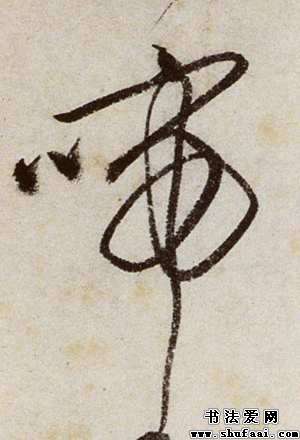 嘯
书法爱网
www.shufaai.com